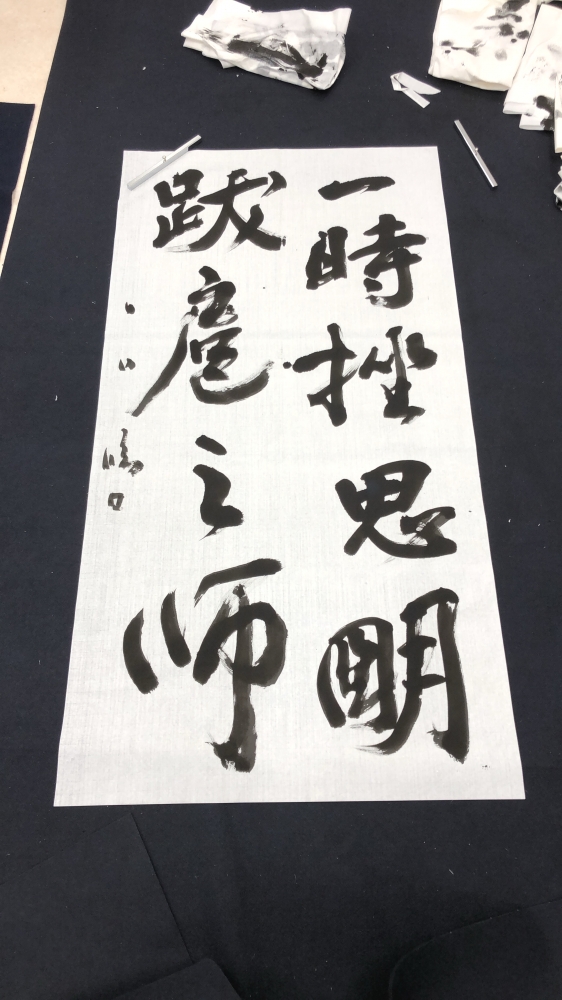 一時挫思明
跋扈之師